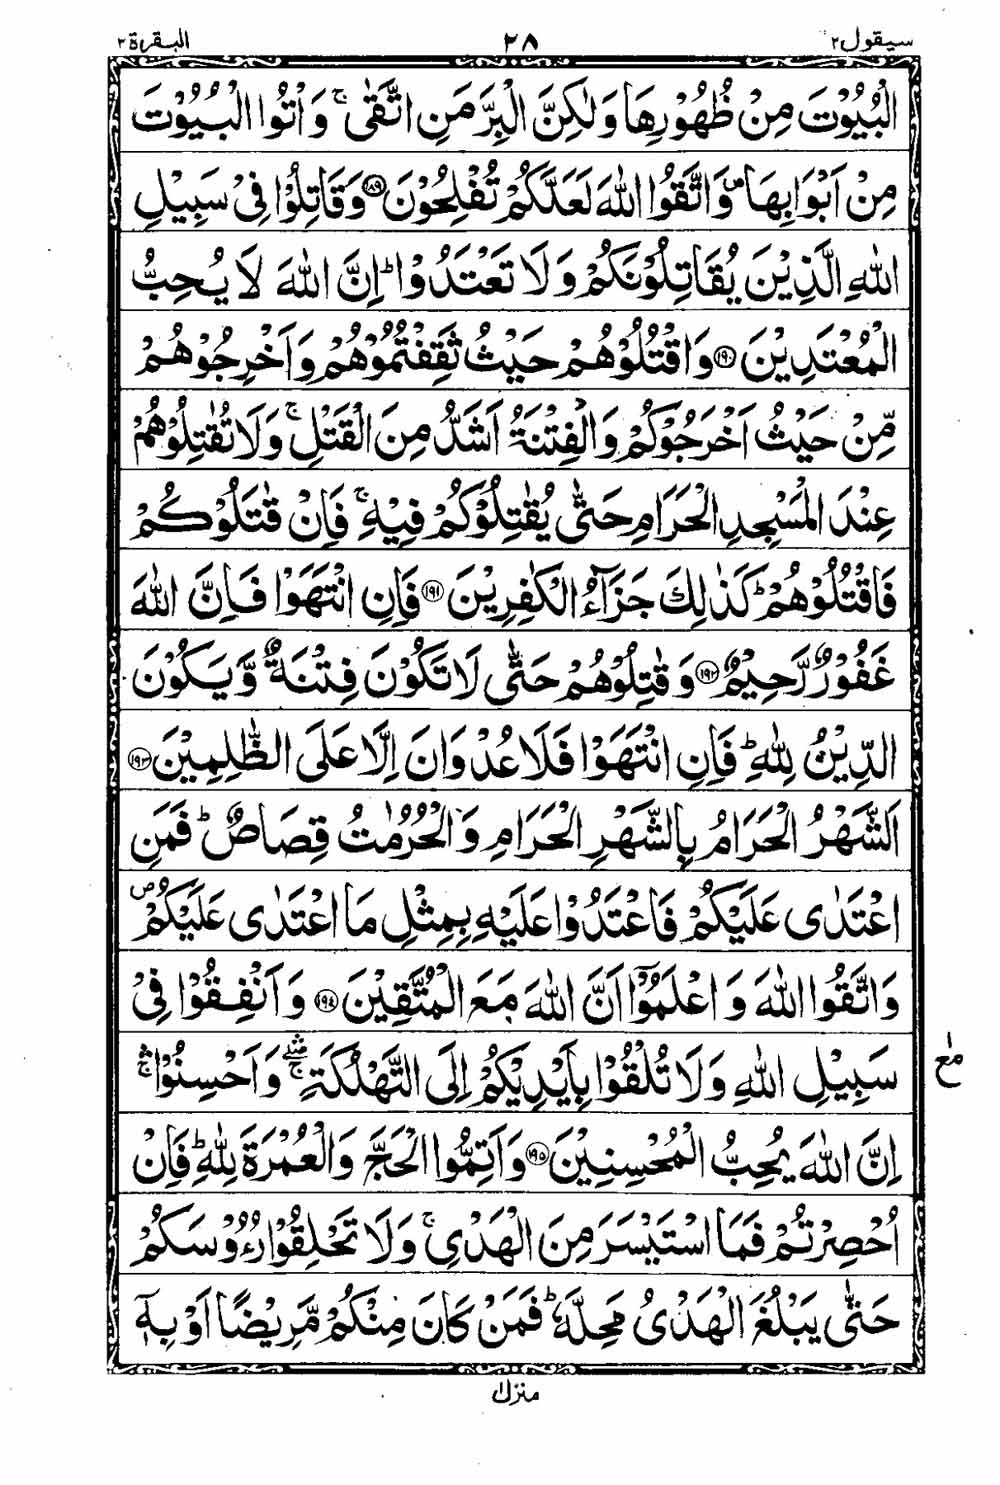 سيقول ٢ ٢٨ البقرة ٢
الْبُيُوْتَ مِنْ ظُهُوْرِهَا وَلٰكِنَّ الْبِرَّ مَنِ اتَّقٰى ۚ وَاْتُوا الْبُيُوْتَ
مِنْ اَبْوَابِهَا ۪ وَاتَّقُوا اللّٰهَ لَعَلَّكُمْ تُفْلِحُوْنَ ﴿١٨٩﴾ وَقَاتِلُوْا فِىْ سَبِيْلِ
اللّٰهِ الَّذِيْنَ يُقَاتِلُوْنَكُمْ وَلَا تَعْتَدُوْا ؕ اِنَّ اللّٰهَ لَا يُحِبُّ
الْمُعْتَدِيْنَ ﴿١٩٠﴾ وَاقْتُلُوْهُمْ حَيْثُ ثَقِفْتُمُوْهُمْ وَاَخْرِجُوْهُمْ
مِّنْ حَيْثُ اَخْرَجُوْكُمْ وَالْفِتْنَةُ اَشَدُّ مِنَ الْقَتْلِ ۚ وَلَا تُقٰتِلُوْهُمْ
عِنْدَ الْمَسْجِدِ الْحَرَامِ حَتّٰى يُقٰتِلُوْكُمْ فِيْهِ ۚ فَاِنْ قٰتَلُوْكُمْ
فَاقْتُلُوْهُمْ ؕ كَذٰلِكَ جَزَآءُ الْكٰفِرِيْنَ ﴿١٩١﴾ فَاِنِ انْتَهَوْا فَاِنَّ اللّٰهَ
غَفُوْرٌ رَّحِيْمٌ ﴿١٩٢﴾ وَقٰتِلُوْهُمْ حَتّٰى لَا تَكُوْنَ فِتْنَةٌ وَّيَكُوْنَ
الدِّيْنُ لِلّٰهِ ؕ فَاِنِ انْتَهَوْا فَلَا عُدْوَانَ اِلَّا عَلَى الظّٰلِمِيْنَ ﴿١٩٣﴾
اَلشَّهْرُ الْحَرَامُ بِالشَّهْرِ الْحَرَامِ وَالْحُرُمٰتُ قِصَاصٌ ؕ فَمَنِ
اعْتَدٰى عَلَيْكُمْ فَاعْتَدُوْا عَلَيْهِ بِمِثْلِ مَا اعْتَدٰى عَلَيْكُمْ ۪
وَاتَّقُوا اللّٰهَ وَاعْلَمُوْۤا اَنَّ اللّٰهَ مَعَ الْمُتَّقِيْنَ ﴿١٩٤﴾ وَاَنْفِقُوْا فِىْ
سَبِيْلِ اللّٰهِ وَلَا تُلْقُوْا بِاَيْدِيْكُمْ اِلَى التَّهْلُكَةِ ۛۚ وَاَحْسِنُوْا ۛۚ
مع
اِنَّ اللّٰهَ يُحِبُّ الْمُحْسِنِيْنَ ﴿١٩٥﴾ وَاَتِمُّوا الْحَجَّ وَالْعُمْرَةَ لِلّٰهِ ؕ فَاِنْ
اُحْصِرْتُمْ فَمَا اسْتَيْسَرَ مِنَ الْهَدْىِ ۚ وَلَا تَحْلِقُوْا رُءُوْسَكُمْ
حَتّٰى يَبْلُغَ الْهَدْىُ مَحِلَّهٗ ؕ فَمَنْ كَانَ مِنْكُمْ مَّرِيْضًا اَوْ بِهٖۤ
منزل ١